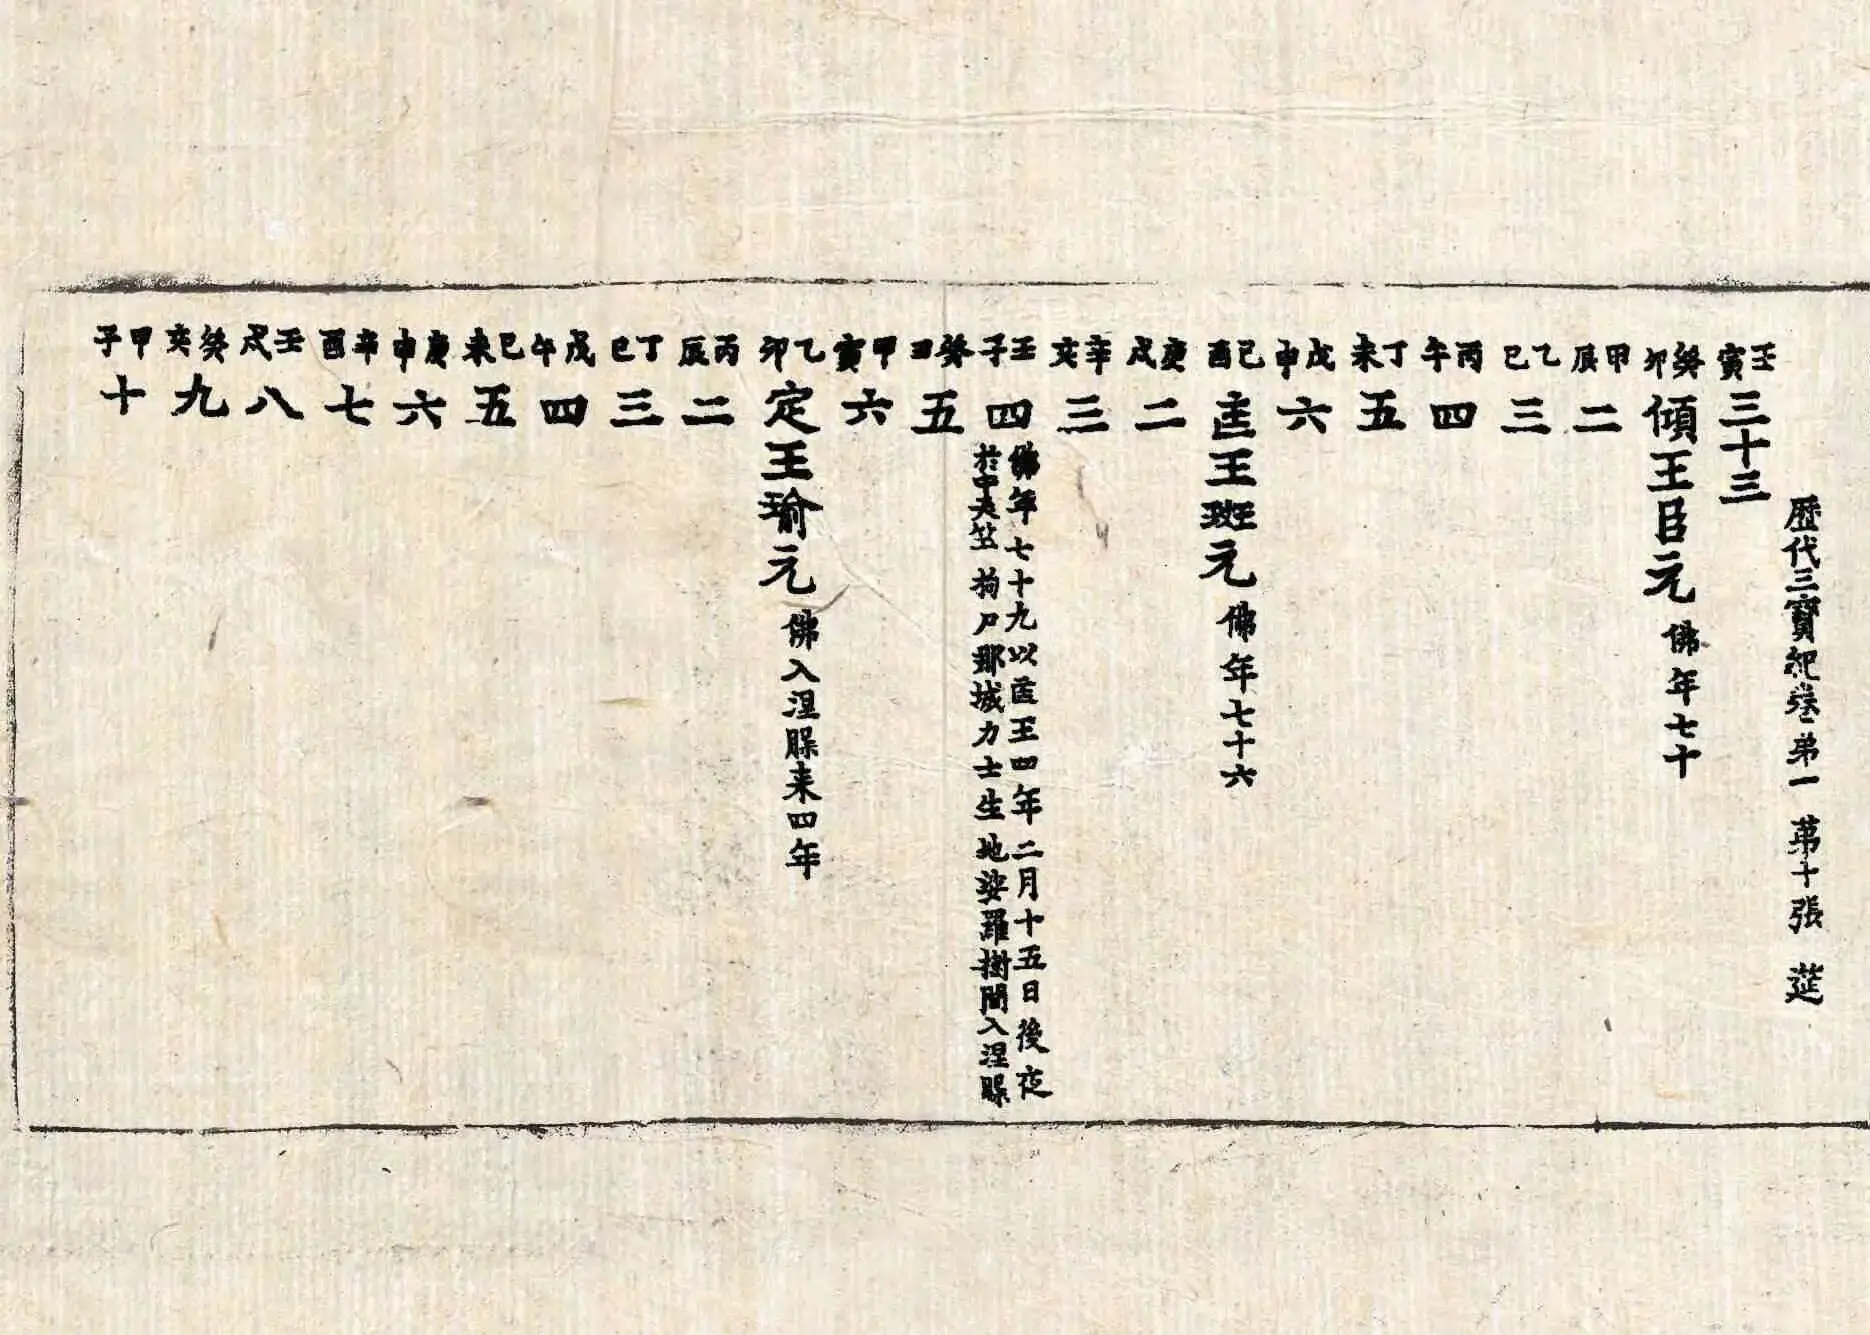 歴代三寶紀卷第一 第十張 莚
壬寅 三十三
癸卯 傾王臣元 佛年七十
甲辰 二
乙巳 三
丙午 四
丁未 五
戊申 六
己酉 匡王班元 佛年七十六
庚戌 二
辛亥 三
壬子 四 佛年七十九以匡王四年二月十五日後夜
於中天竺拘尸那城力士生地娑羅樹間入涅槃
癸丑 五
甲寅 六
乙卯 定王瑜元 佛入涅槃来四年
丙辰 二
丁巳 三
戊午 四
己未 五
庚申 六
辛酉 七
壬戌 八
癸亥 九
甲子 十